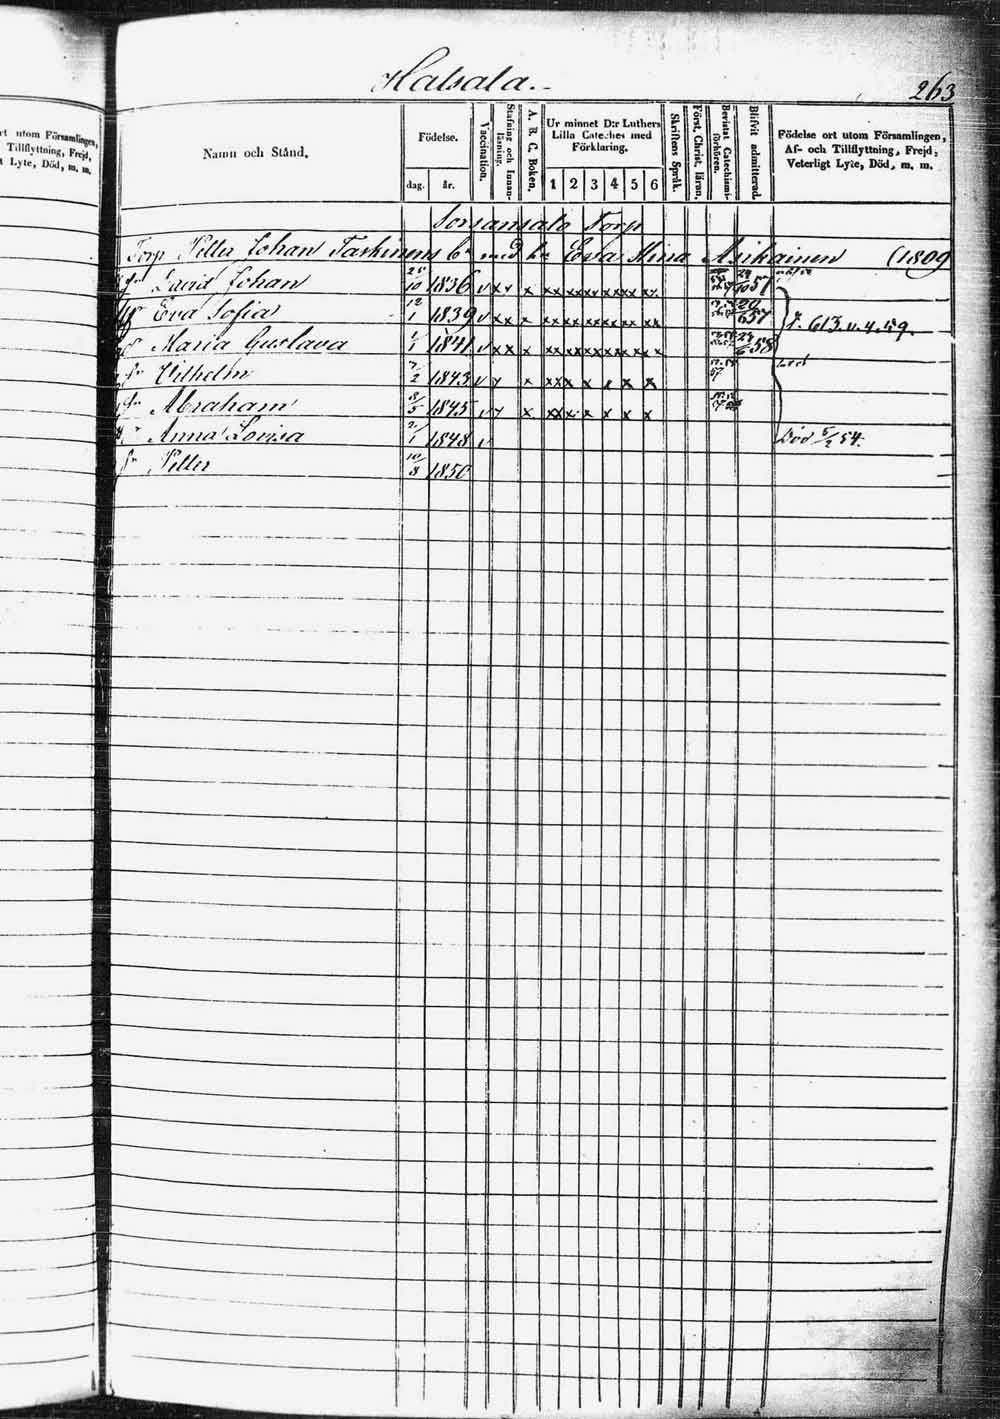 Halsala.
263
rt utom Församlingen,
Tillflyttning, Frejd,
t Lyte, Död, m. m.
Namn och Stånd.
Födelse.
dag. år.
Vaccination.
Stafning och Innanläsning.
A. B. C. Boken.
Ur minnet D:r Luthers
Lilla Cateches med
Förklaring.
1 2 3 4 5 6
Skriftens Språk.
Först. Christ. läran.
Bevistat Catechismiförhören.
Blifvit admitterad.
Födelse ort utom Församlingen,
Af- och Tillflyttning, Frejd,
Veterligt Lyte, Död, m. m.
Sorsansalo Torp
Torp Petter Johan Taskinens b:n med h:u Eva Stina Asikainen (1809
Sn David Johan 25/10 1836 v x x x x x x x x x x x x x 57
Eva Sofia 12/1 1839 v x x x x x x x x x x x x x 20/6 57 f. 613. v. 4. 59.
Maria Gustava 1841 v x x x x x x x x x x x x x 58
Sn Wilhelm 7/2 1843 v x x x x x x x x 57
Sn Abraham 8/5 1845 v x x x x x x x x
Anna Lovisa 2/1 1848 v Död 5/2 54.
Sn Petter 10/8 1850